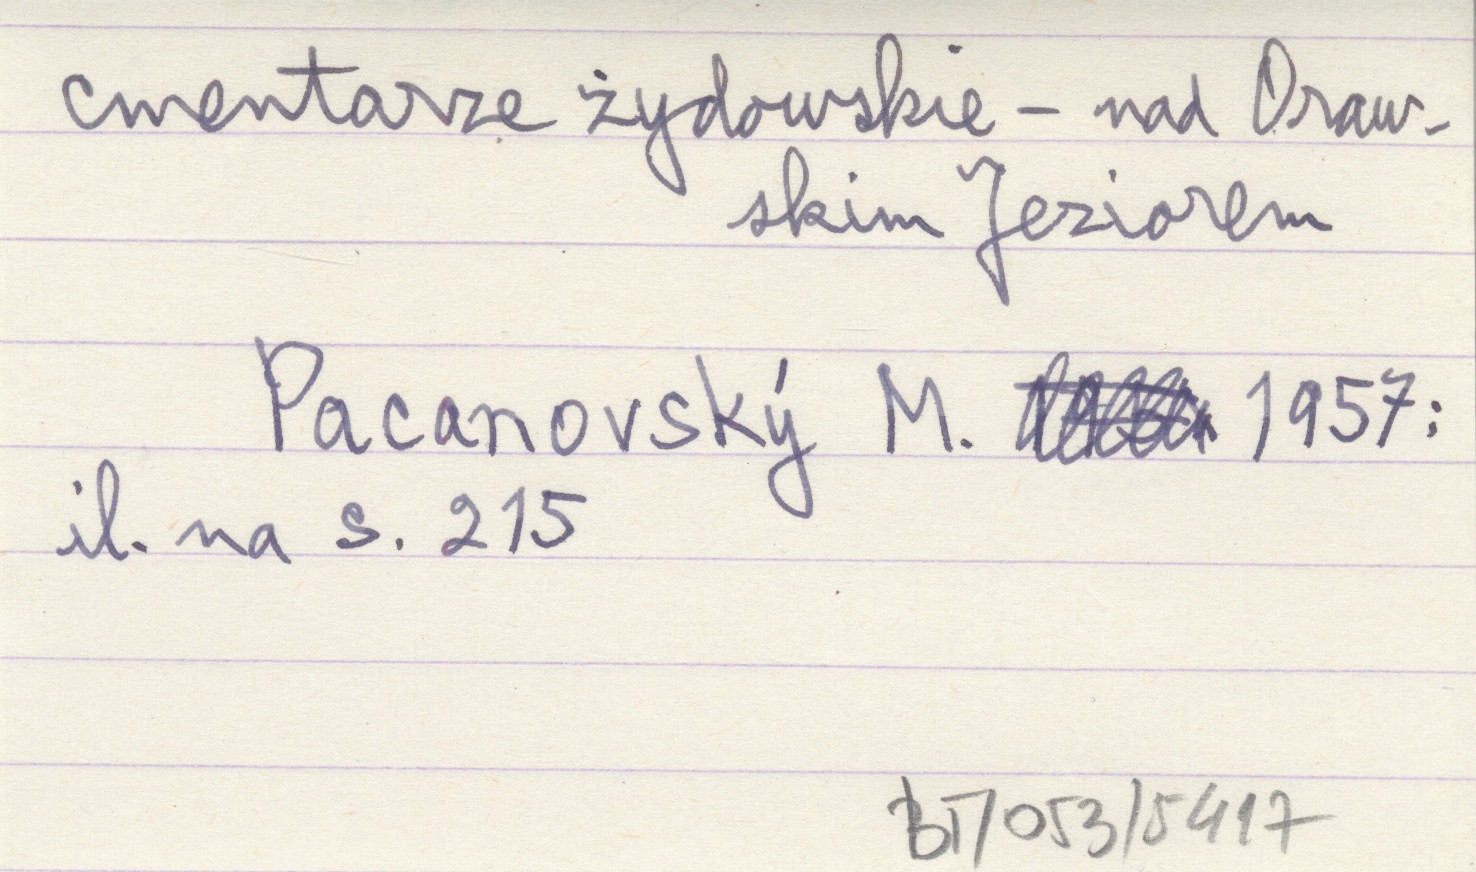 cmentarze żydowskie - nad Oraw-
skim Jeziorem
Pacanovský M. 1957:
il. na s. 215
BT/053/5417